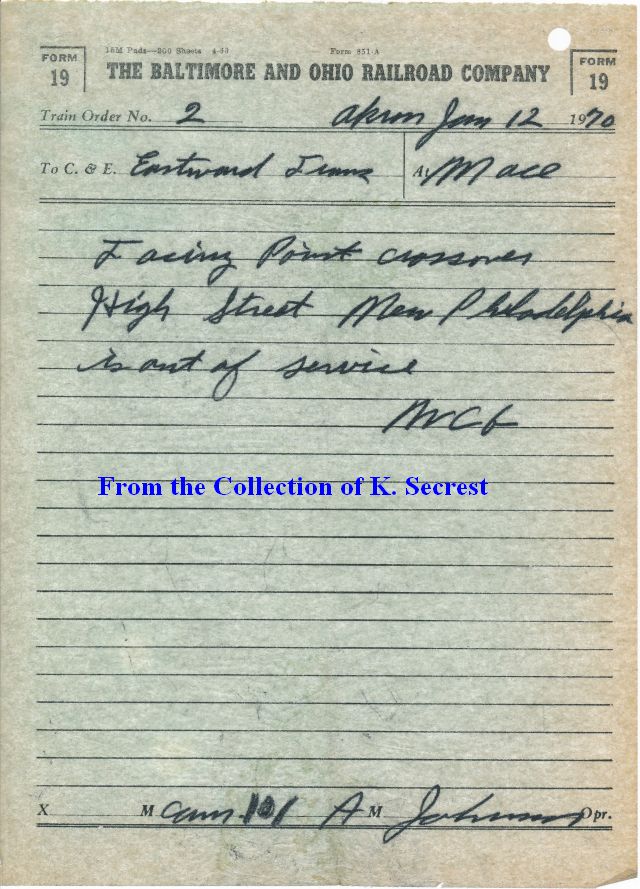 15M Pads—200 Sheets 4-69 Form 851-A
FORM 19
THE BALTIMORE AND OHIO RAILROAD COMPANY
FORM 19
Train Order No. 2 Akron Jan 12 1970
To C. & E. Eastward Trans At Mace
Facing Point crossover
High Street New Philadelphia
is out of service
From the Collection of K. Secrest
X M Com. 101 A M Johnson Opr.